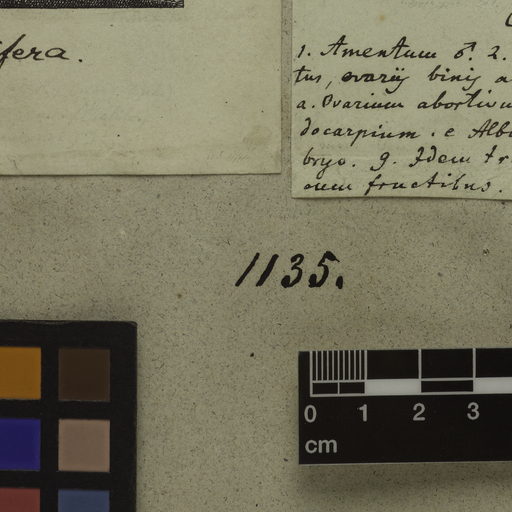 ifera.
1. Amentum ♂. 2.
tus, ovariis binis a
a. Ovarium abortivu
docarpium. e Albu
bryo. g. Idem tr
cum fructibus.
1135.
0 1 2 3
cm